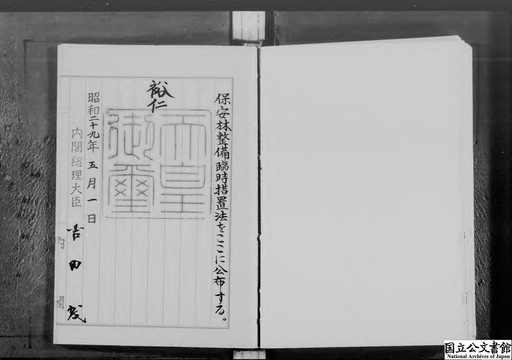 保安林整備臨時措置法をここに公布する。
裕仁
天皇
御璽
昭和二十九年五月一日
内閣総理大臣
吉田茂
国立公文書館
National Archives of Japan